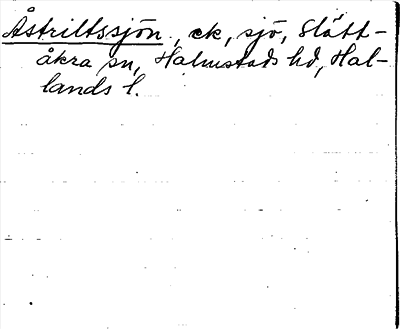 Åstriltssjön, ek, sjö, Slätt-
åkra sn, Halmstads hd, Hal-
lands l.